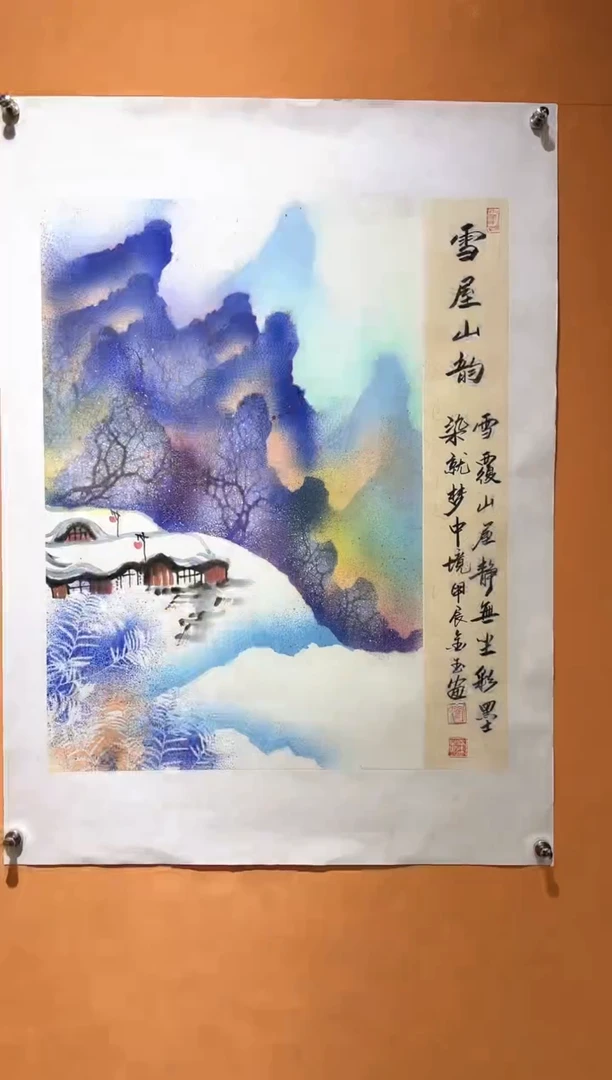 雪屋山韵
雪覆山屋静無尘彩墨
染就梦中境甲辰金玉画